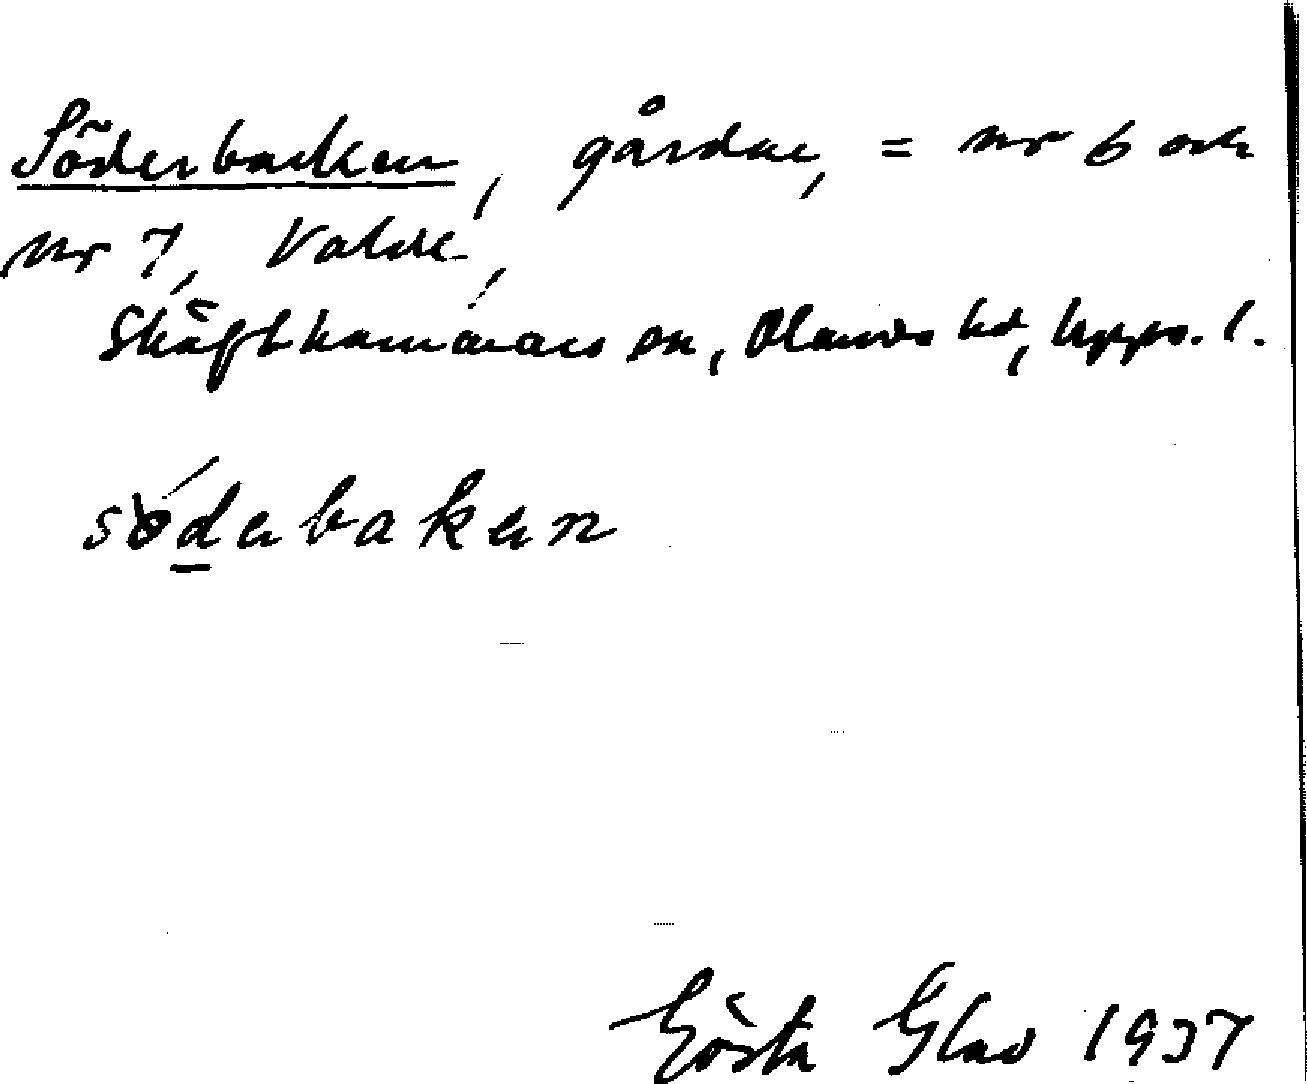 Söderbacken, gårdar, = nr 6 och
nr 7, Valde,
Skäfthammars sn, Olands hd, Upps. l.
södabakan
Gösta Glad 1937